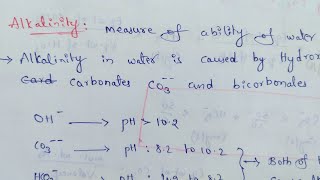 Alkalinity: measure of ability of water
→ Alkalinity in water is caused by Hydro
carbonates CO₃⁻⁻ and bicorbonates
OH⁻ ⟶ pH > 10.2
CO₃⁻⁻ ⟶ pH : 8.2 to 10.2 → Both of
HCO₃⁻ ⟶ pH : to 8.2